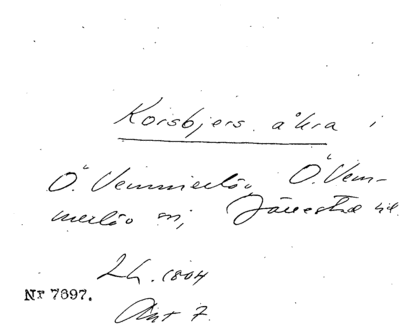 Korsbjers åkra i
Ö. Vemmerlöv, Ö. Vem-
merlöv sn, Järrestad hd.
Lh. 1804
Nr 7697.
Akt 7.